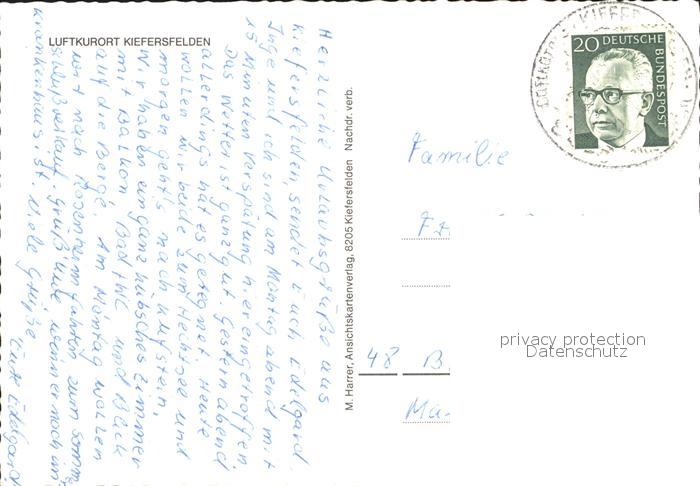 LUFTKURORT KIEFERSFELDEN
Herzliche Urlaubsgrüße aus
Kiefersfelden, sendet Euch Edelgard.
Inge und ich sind am Montag abend mit
15 Minuten Verspätung hier eingetroffen
Das Wetter ist ganz gut. Gestern abend
allerdings hat es geregnet. Heute
wollen wir beide zum Hechtsee und
morgen geht's nach Kufstein.
Wir haben ein ganz hübsches Zimmer
mit Balkon, Bad + WC und Blick
auf die Berge. Am Montag wollen
wir nach Rosenheim fahren zum Sommer
schlußverkauf. Grüß wenn er noch im
Krankenhaus ist. Viele Grüße
Edelgard
M. Harrer, Ansichtskartenverlag, 8205 Kiefersfelden Nachdr. verb.
20 DEUTSCHE
BUNDESPOST
KIEFER
Luftkurort
Familie
48 B.
Ma
privacy protection
Datenschutz